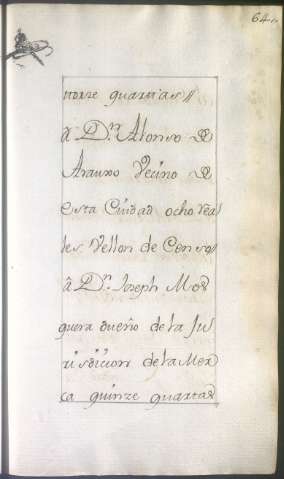 64..
torze quartas //
â D.ⁿ Alonso de
Arauxo Vecino de
esta Ciudad ocho rea
les Vellon de Censo
â D.ⁿ Joseph Mos
quera dueño de la Ju
risdicion de la Mer
ca quinze quartas